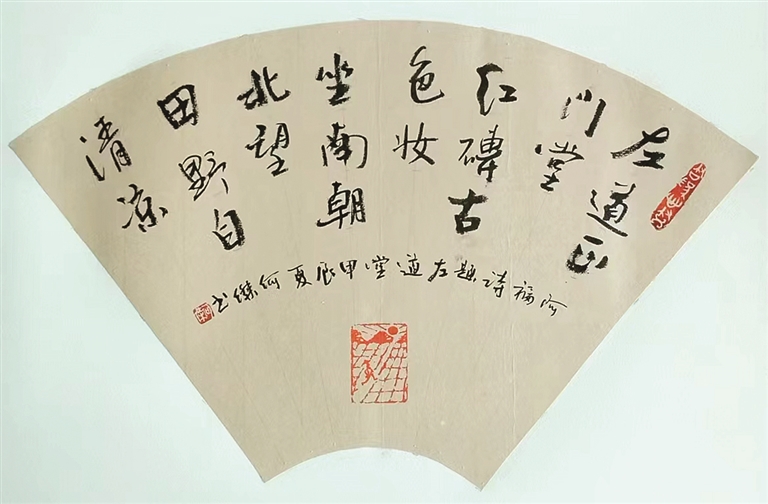 左道正
门堂
红砖古
色妆
坐南朝
北望
田野自
清凉
阿福诗题左道堂甲辰夏何杰书